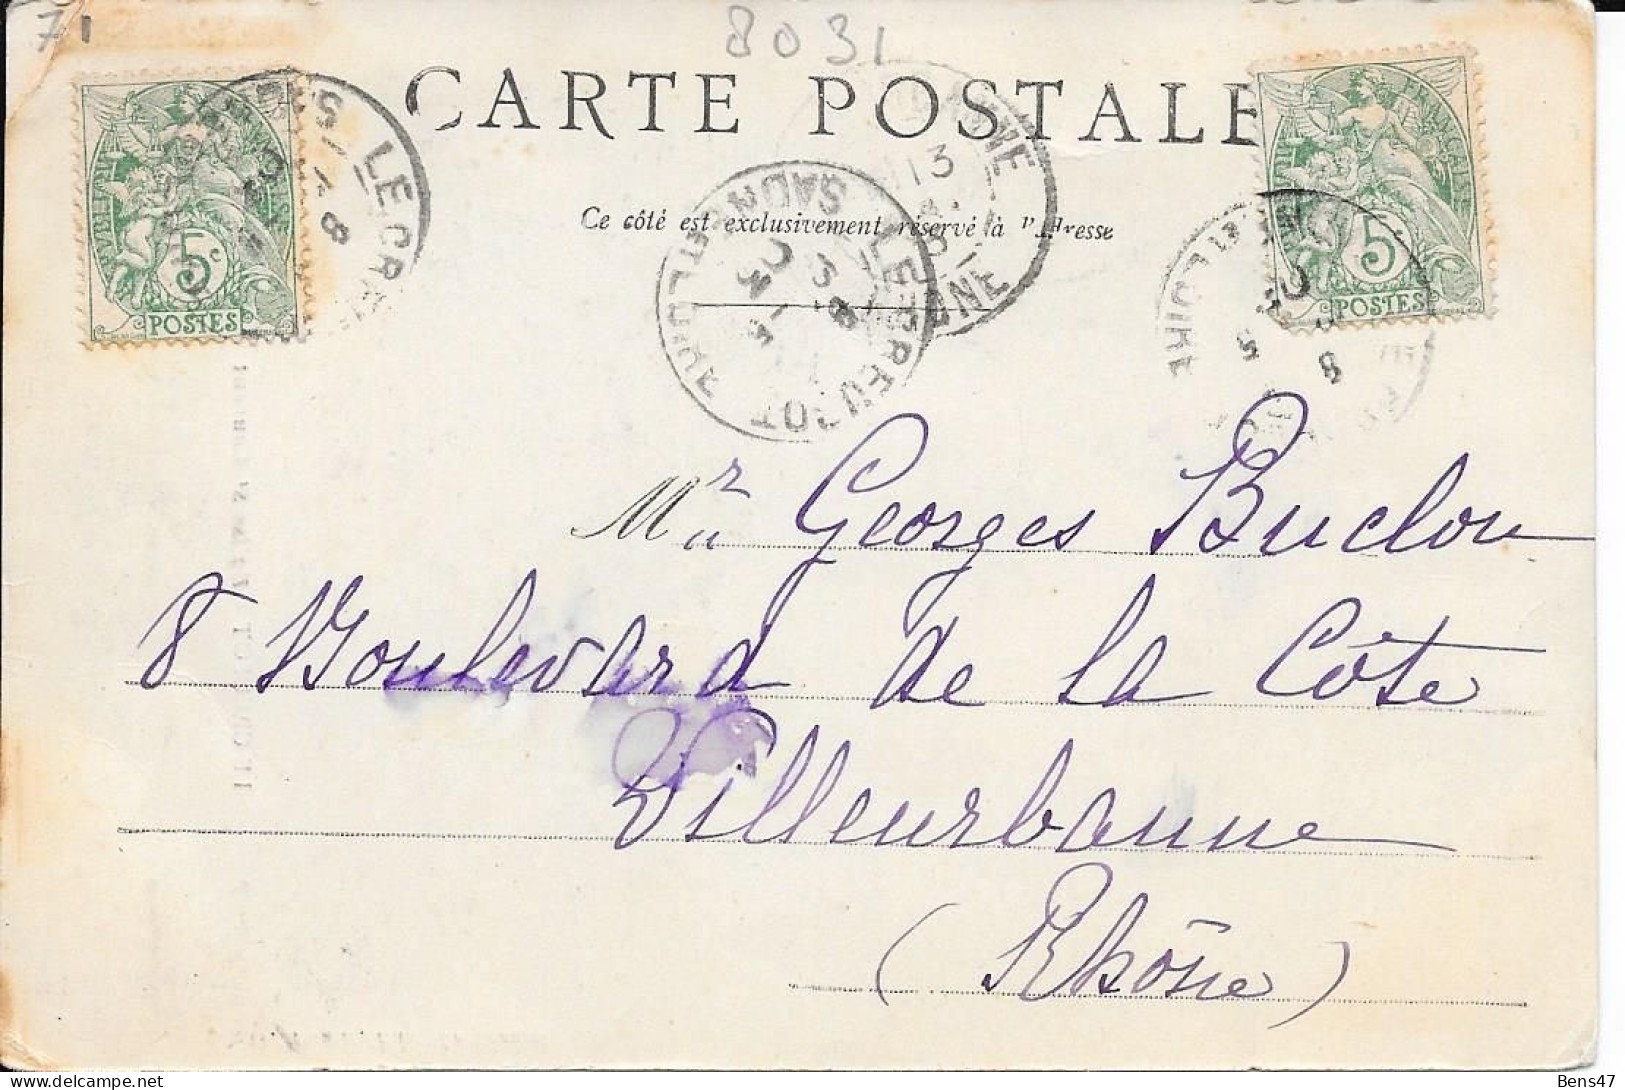 71
8031
CARTE POSTALE
Ce côté est exclusivement réservé à l'Adresse
5c
POSTES
LE CREUSOT
SAONE ET LOIRE
5c
POSTES
Mr Georges Buclon
8 Boulevard de la Côte
Villeurbanne
(Rhône)
Bens47